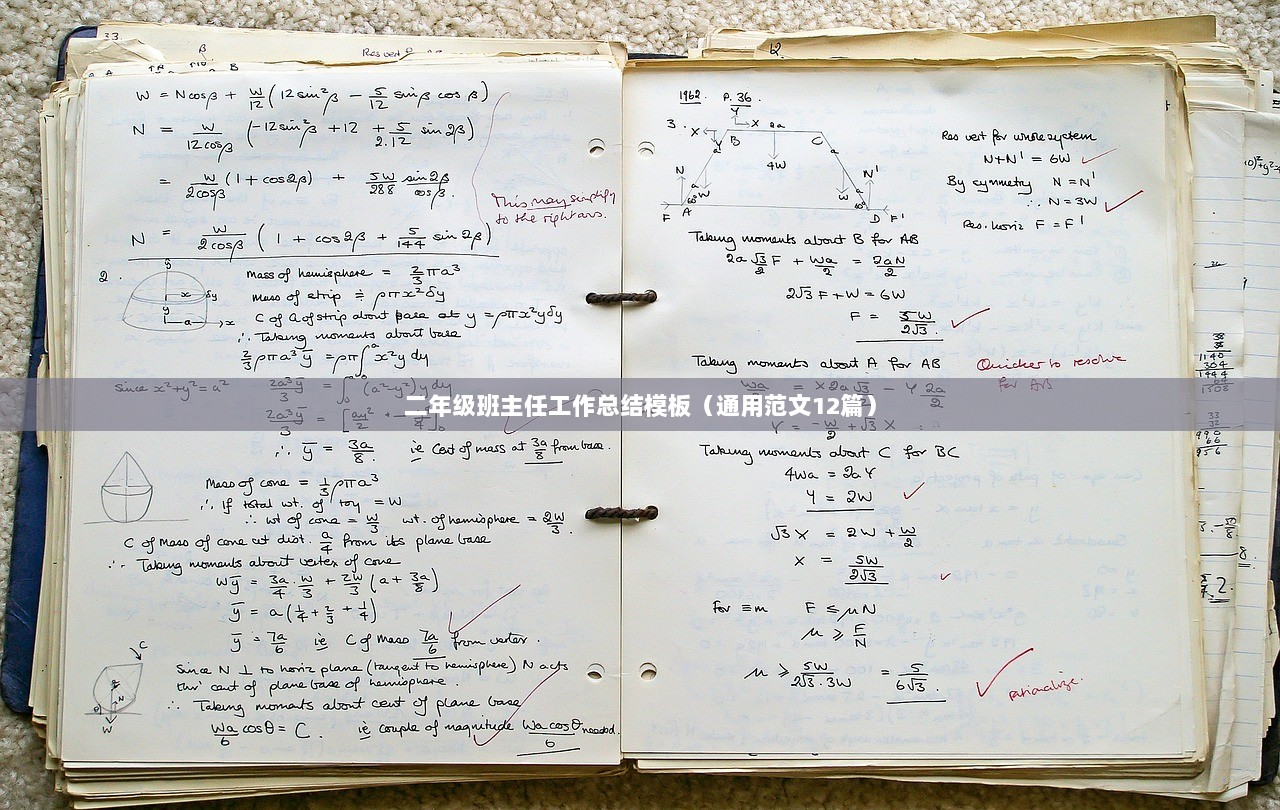 33.
W = N cos β + W/12 (12 sin²β − 5/12 sin β cos β)
N = W/12 cos β (−12 sin²β + 12 + 5/2.12 sin 2β)
= W/2cos β (1 + cos 2β) + 5W/288 sin 2β/cos β.
This may simplify
to the right ans.
N = W/2cos β (1 + cos 2β + 5/144 sin 2β)
2.
Mass of hemisphere = 2/3 π a³
mass of strip ≑ ρπx²δy
C of G of strip about base at y = ρπx²yδy
∴ Taking moments about base
2/3 ρπa³ȳ = ρπ∫x²y dy
since x²+y² = a² 2a³ȳ/3 = ∫(a²−y²)y dy
二年级班主任工作总结模板（通用范文12篇）
∴ ȳ = 3a/8. ie Cent of mass at 3a/8 from base.
Mass of cone = 1/3 ρπa³
∴ If total wt. of toy = W
∴ wt of cone = W/3 wt. of hemisphere = 2W/3.
C of Mass of cone at dist. a/4 from its plane base
∴ Taking moments about vertex of cone
Wȳ = 3a/4 · W/3 + 2W/3 (a + 3a/8)
ȳ = a(1/4 + 2/3 + 1/4)
ȳ = 7a/6 ie C of Mass 7a/6 from vertex.
Since N ⊥ to horiz plane (tangent to hemisphere) N acts
thro' cent of plane base of hemisphere.
∴ Taking moments about cent of plane base
Wa/6 cos θ = C. ie couple of magnitude Wa cos θ/6 needed.
1962. P. 36.
3.
Res vert for whole system
N+N' = 6W
By symmetry N = N'
∴ N = 3W
Res. horiz F = F'
Taking moments about B for AB
2a √3/2 F + Wa/2 = 2aN/2
2√3 F + W = 6W
F = 5W/2√3.
Taking moments about A for AB
Quicker to resolve
for AB
Wa/2 = X 2a √3/2 − Y 2a/2
Y = −W/2 + √3 X
Taking moments about C for BC
4Wa = 2aY
Y = 2W
√3 X = 2W + W/2
X = 5W/2√3
For ≡m F ≤ μN
μ ≥ F/N
μ ≥ 5W/2√3.3W = 5/6√3.
rationalize.